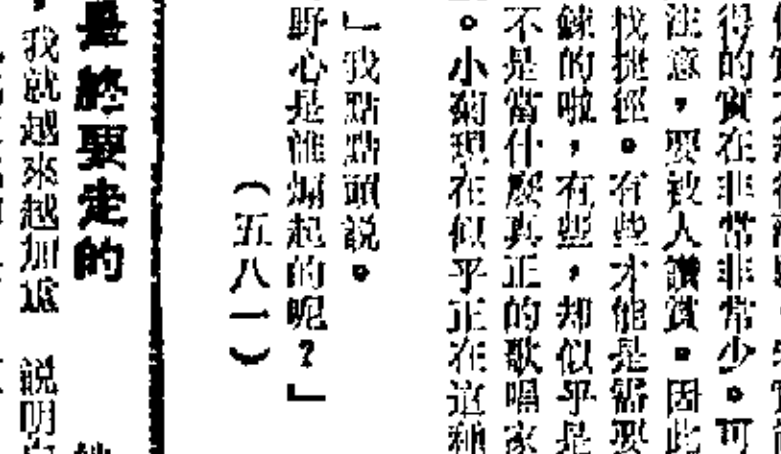 得的實在非常非常少。可
注意，要被人讚賞。因此
找捷徑。有些才能是需要
鍊的啦，有些，却似乎是
不是當什麼真正的歌唱家
。小菊現在似乎正在這種
」我點點頭說。
野心是誰煽起的呢？」
（五八一）
是終要走的
，我就越來越加遠 説明